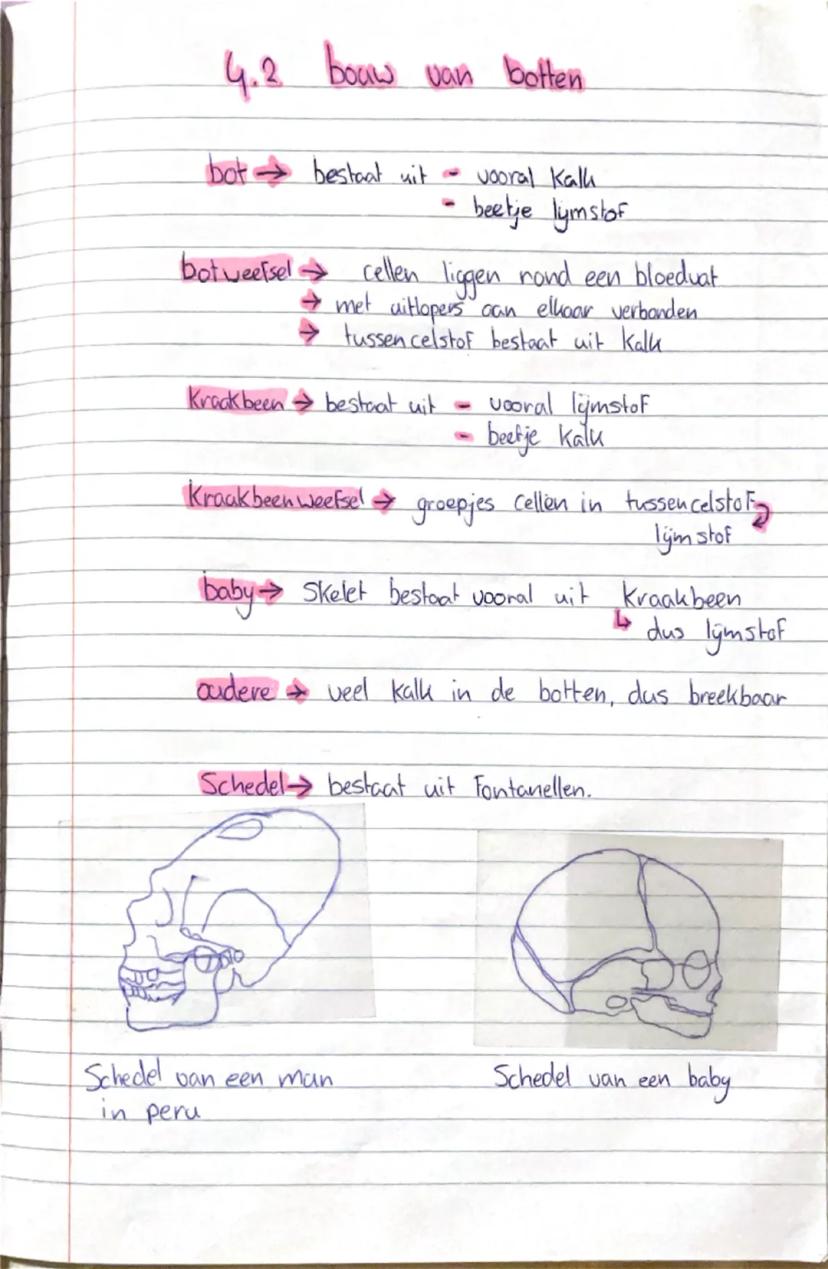 4.2 bouw van botten
bot → bestaat uit - vooral kalk
- beetje lijmstof
botweefsel → cellen liggen rond een bloedvat
→ met uitlopers aan elkaar verbonden
→ tussencelstof bestaat uit kalk
Kraakbeen → bestaat uit - vooral lijmstof
- beetje kalk
Kraakbeenweefsel → groepjes cellen in tussencelstof
lijmstof
baby → skelet bestaat vooral uit kraakbeen
↳ dus lijmstof
oudere → veel kalk in de botten, dus breekbaar
Schedel → bestaat uit Fontanellen.
Schedel van een man
in peru
Schedel van een baby